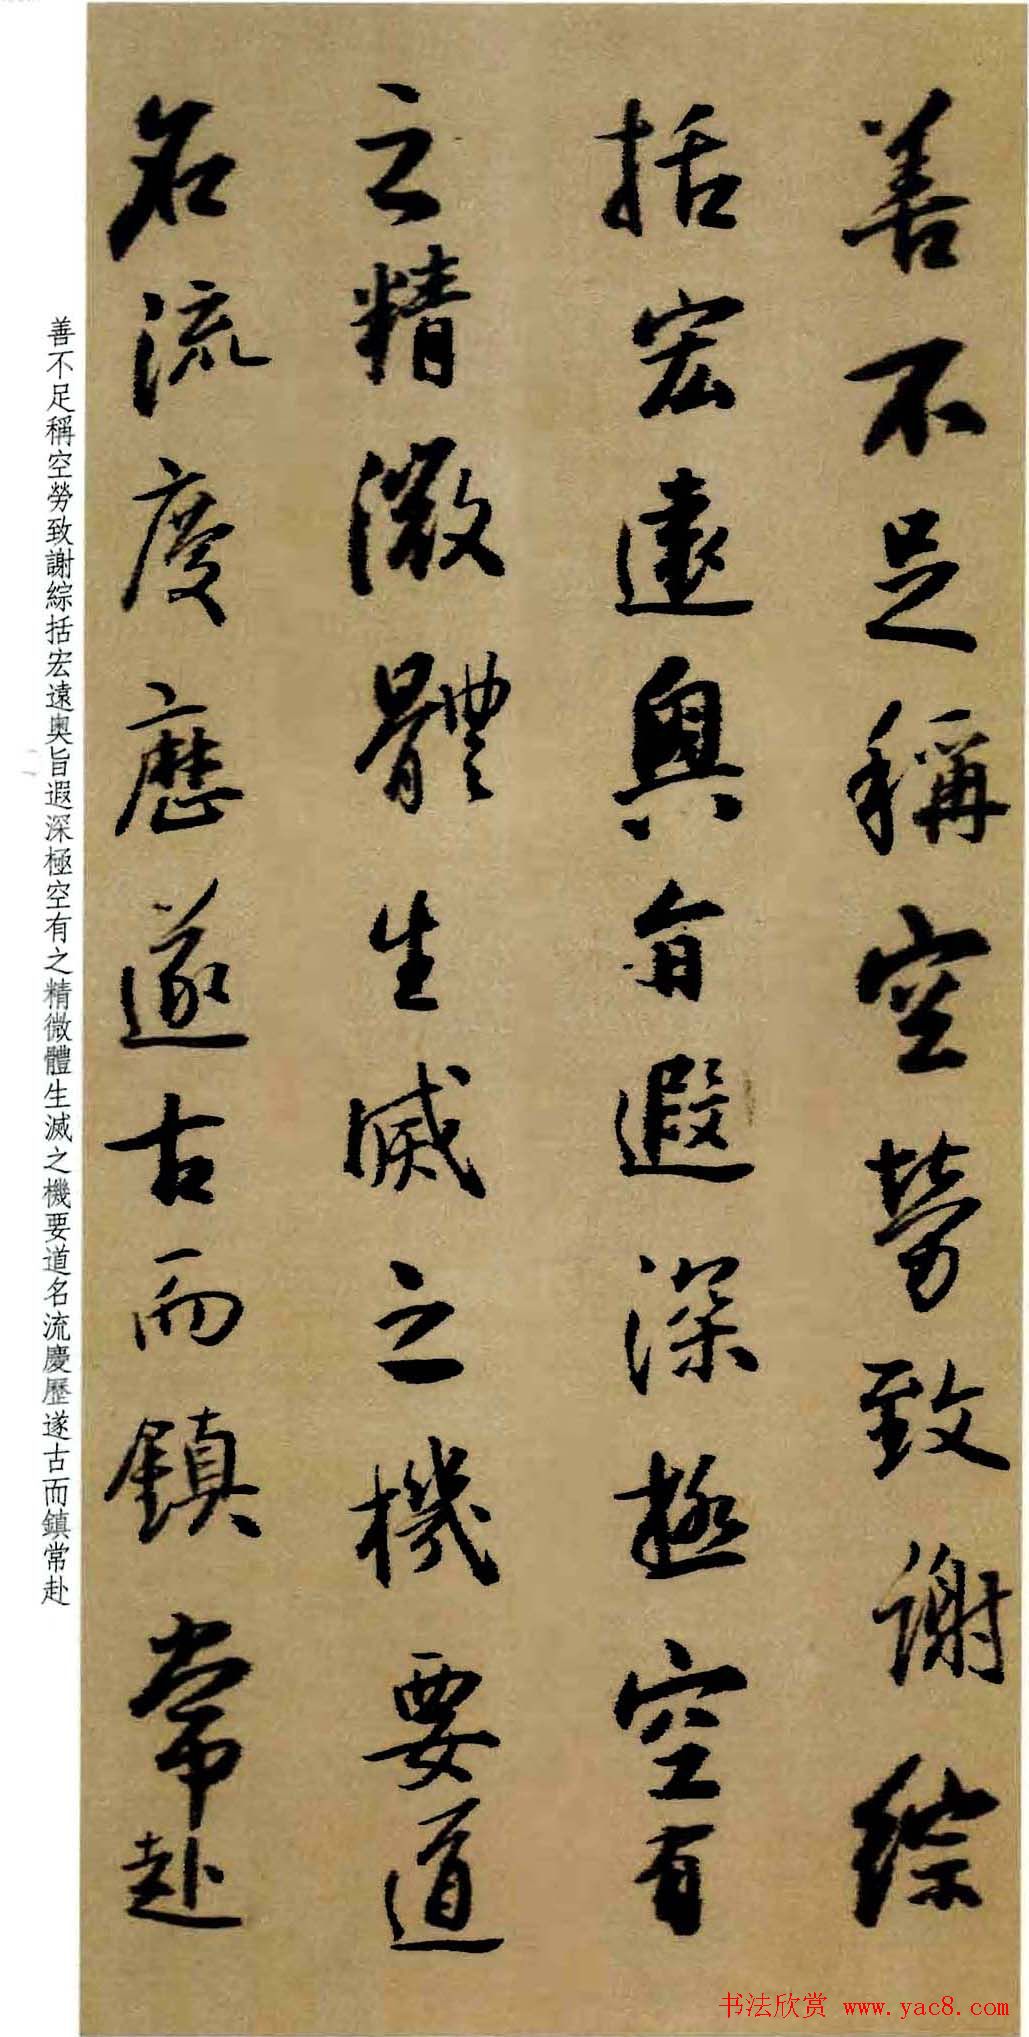 善不足稱空勞致謝綜
括宏遠奧旨遐深極空有
之精微體生滅之機要道
名流慶歷遂古而鎮常赴
善不足稱空勞致謝綜括宏遠奧旨遐深極空有之精微體生滅之機要道名流慶歷遂古而鎮常赴
书法欣赏 www.yac8.com